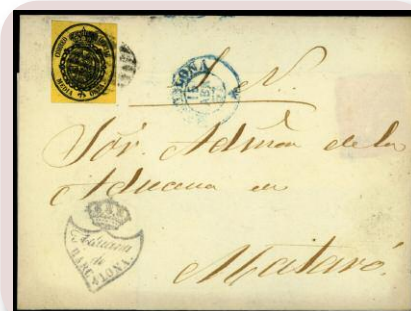 S. N.
Sór. Admõn de la
Aduana en
Mataró.
Aduana
de
BARCELONA.